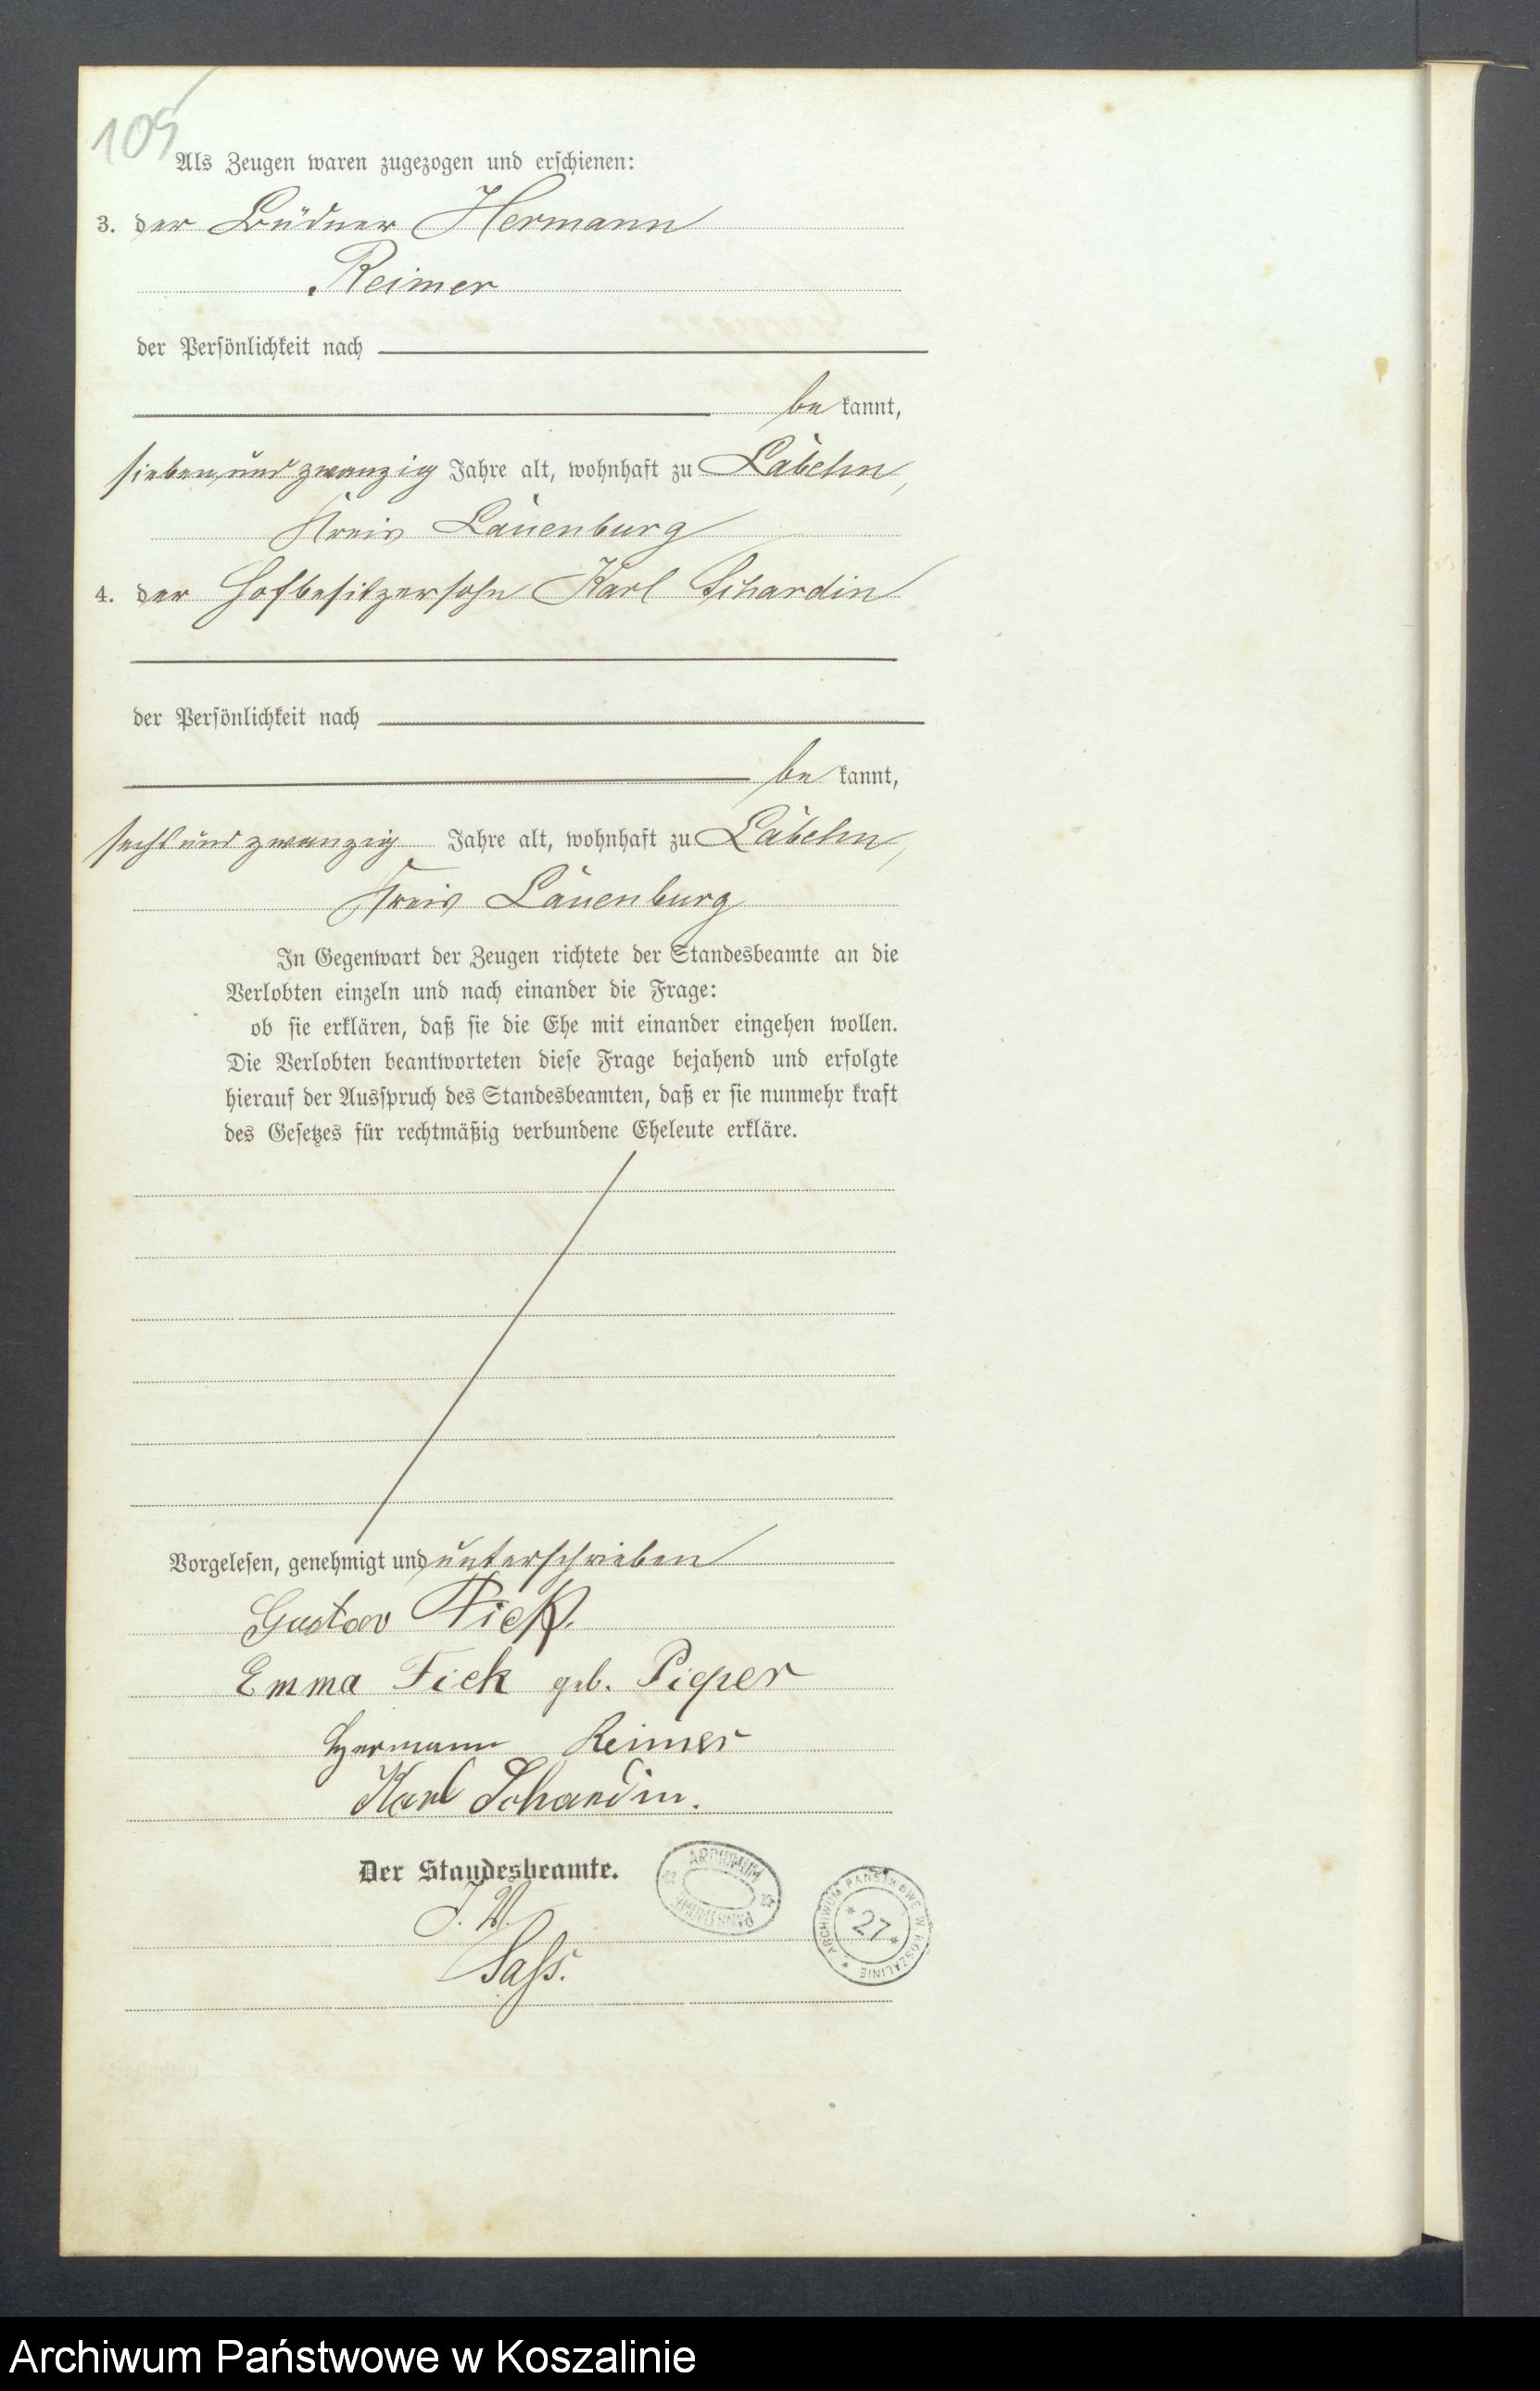 109
Als Zeugen waren zugezogen und erschienen:
3. der Büdner Hermann
Reimer
der Persönlichkeit nach
be kannt,
siebenundzwanzig Jahre alt, wohnhaft zu Labehn,
Kreis Lauenburg
4. der Hofbesitzersohn Karl Schardin
der Persönlichkeit nach
be kannt,
sechsundzwanzig Jahre alt, wohnhaft zu Labehn,
Kreis Lauenburg
In Gegenwart der Zeugen richtete der Standesbeamte an die
Verlobten einzeln und nach einander die Frage:
ob sie erklären, daß sie die Ehe mit einander eingehen wollen.
Die Verlobten beantworteten diese Frage bejahend und erfolgte
hierauf der Ausspruch des Standesbeamten, daß er sie nunmehr kraft
des Gesetzes für rechtmäßig verbundene Eheleute erkläre.
Vorgelesen, genehmigt und unterschrieben
Gustav Fick.
Emma Fick geb. Pieper
Hermann Reimer
Karl Schardin.
Der Standesbeamte.
J. V.
Sass.
ARCHIWUM PAŃSTWOWE
ARCHIWUM PAŃSTWOWE W KOSZALINIE * 27 *
Archiwum Państwowe w Koszalinie